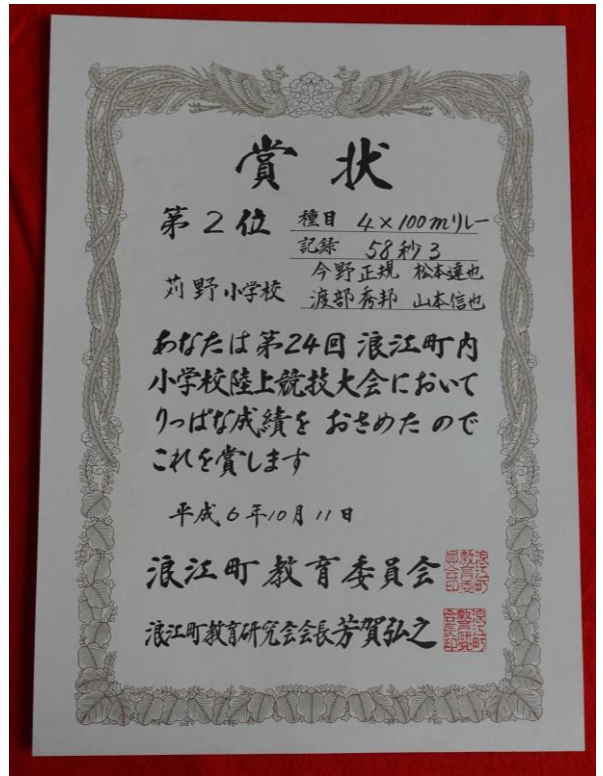 賞状
第2位 種目 4×100mリレー
記録 58秒3
苅野小学校 今野正規 松本達也
渡部秀邦 山本信也
あなたは第24回浪江町内
小学校陸上競技大会において
りっぱな成績を おさめた ので
これを賞します
平成6年10月11日
浪江町教育委員会
浪江町教育研究会会長芳賀弘之